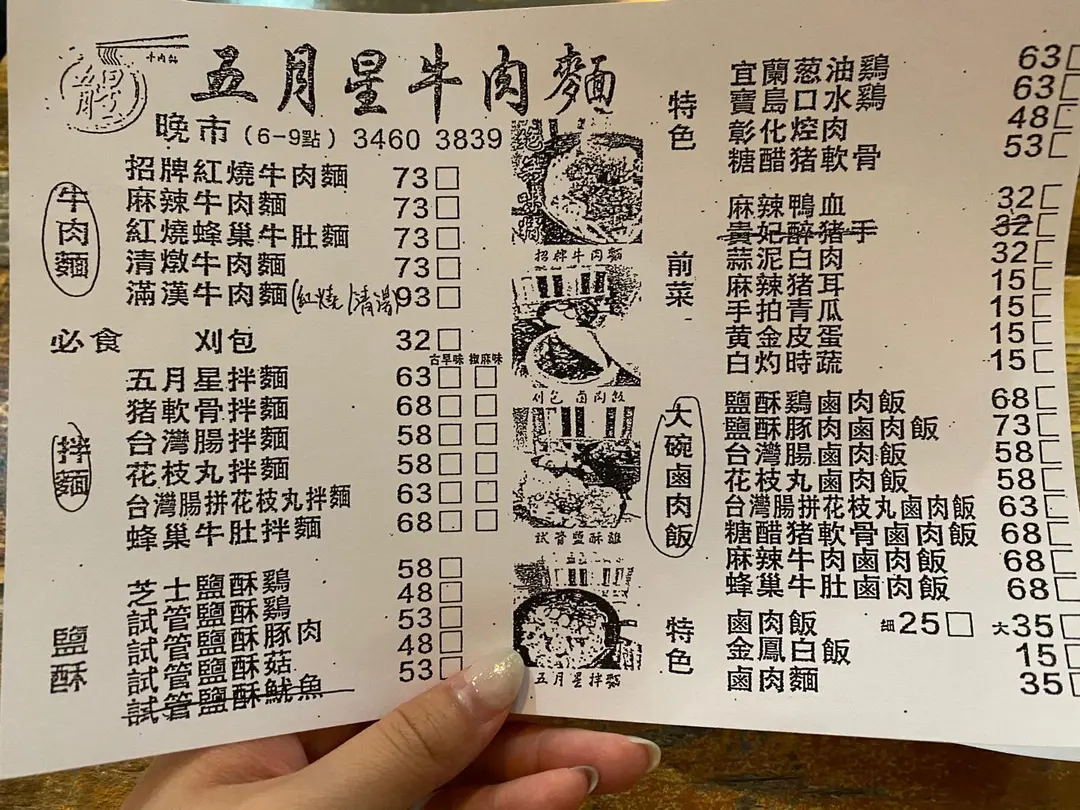 五月星牛肉麵
晚市(6-9點) 3460 3839
牛肉麵
招牌紅燒牛肉麵 73
麻辣牛肉麵 73
紅燒蜂巢牛肚麵 73
清燉牛肉麵 73
滿漢牛肉麵(紅燒/清湯) 93
必食 刈包 32
古早味 椒麻味
拌麵
五月星拌麵 63
豬軟骨拌麵 68
台灣腸拌麵 58
花枝丸拌麵 58
台灣腸拼花枝丸拌麵 63
蜂巢牛肚拌麵 68
鹽酥
芝士鹽酥鷄 58
試管鹽酥鷄 48
試管鹽酥豚肉 53
試管鹽酥菇 48
試管鹽酥魷魚 53
招牌牛肉麵
刈包 鹵肉飯
試管鹽酥雞
五月星拌麵
特色
宜蘭葱油鷄 63
寶島口水鷄 63
彰化焢肉 48
糖醋猪軟骨 53
前菜
麻辣鴨血 32
貴妃醉猪手 32
蒜泥白肉 32
麻辣猪耳 15
手拍青瓜 15
黄金皮蛋 15
白灼時蔬 15
大碗鹵肉飯
鹽酥鷄鹵肉飯 68
鹽酥豚肉鹵肉飯 73
台灣腸鹵肉飯 58
花枝丸鹵肉飯 58
台灣腸拼花枝丸鹵肉飯 63
糖醋猪軟骨鹵肉飯 68
麻辣牛肉鹵肉飯 68
蜂巢牛肚鹵肉飯 68
特色
鹵肉飯 細25 大35
金鳳白飯 15
鹵肉麵 35